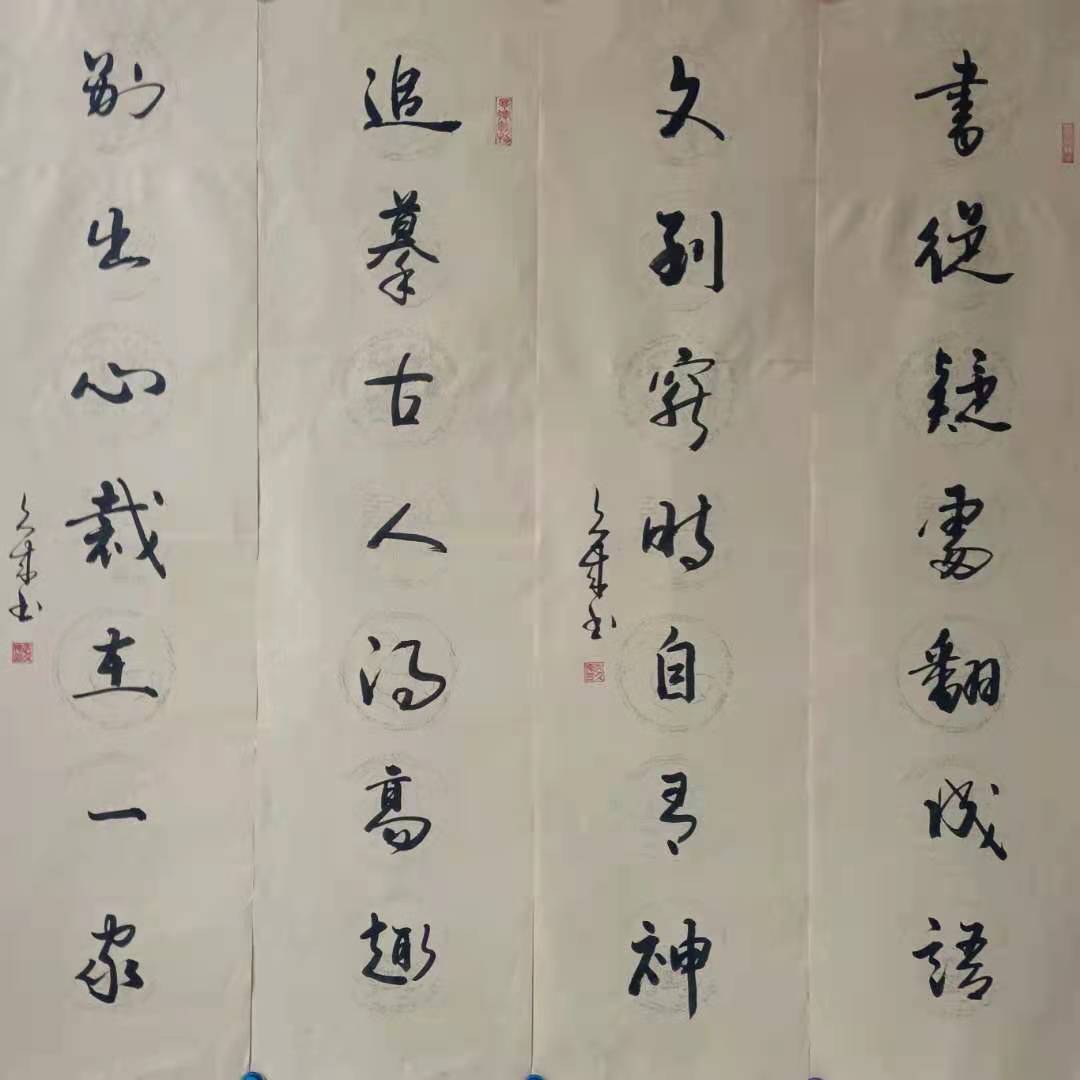 書從疑處翻成語
文到窮時自有神
追摹古人得高趣
别出心裁在一家